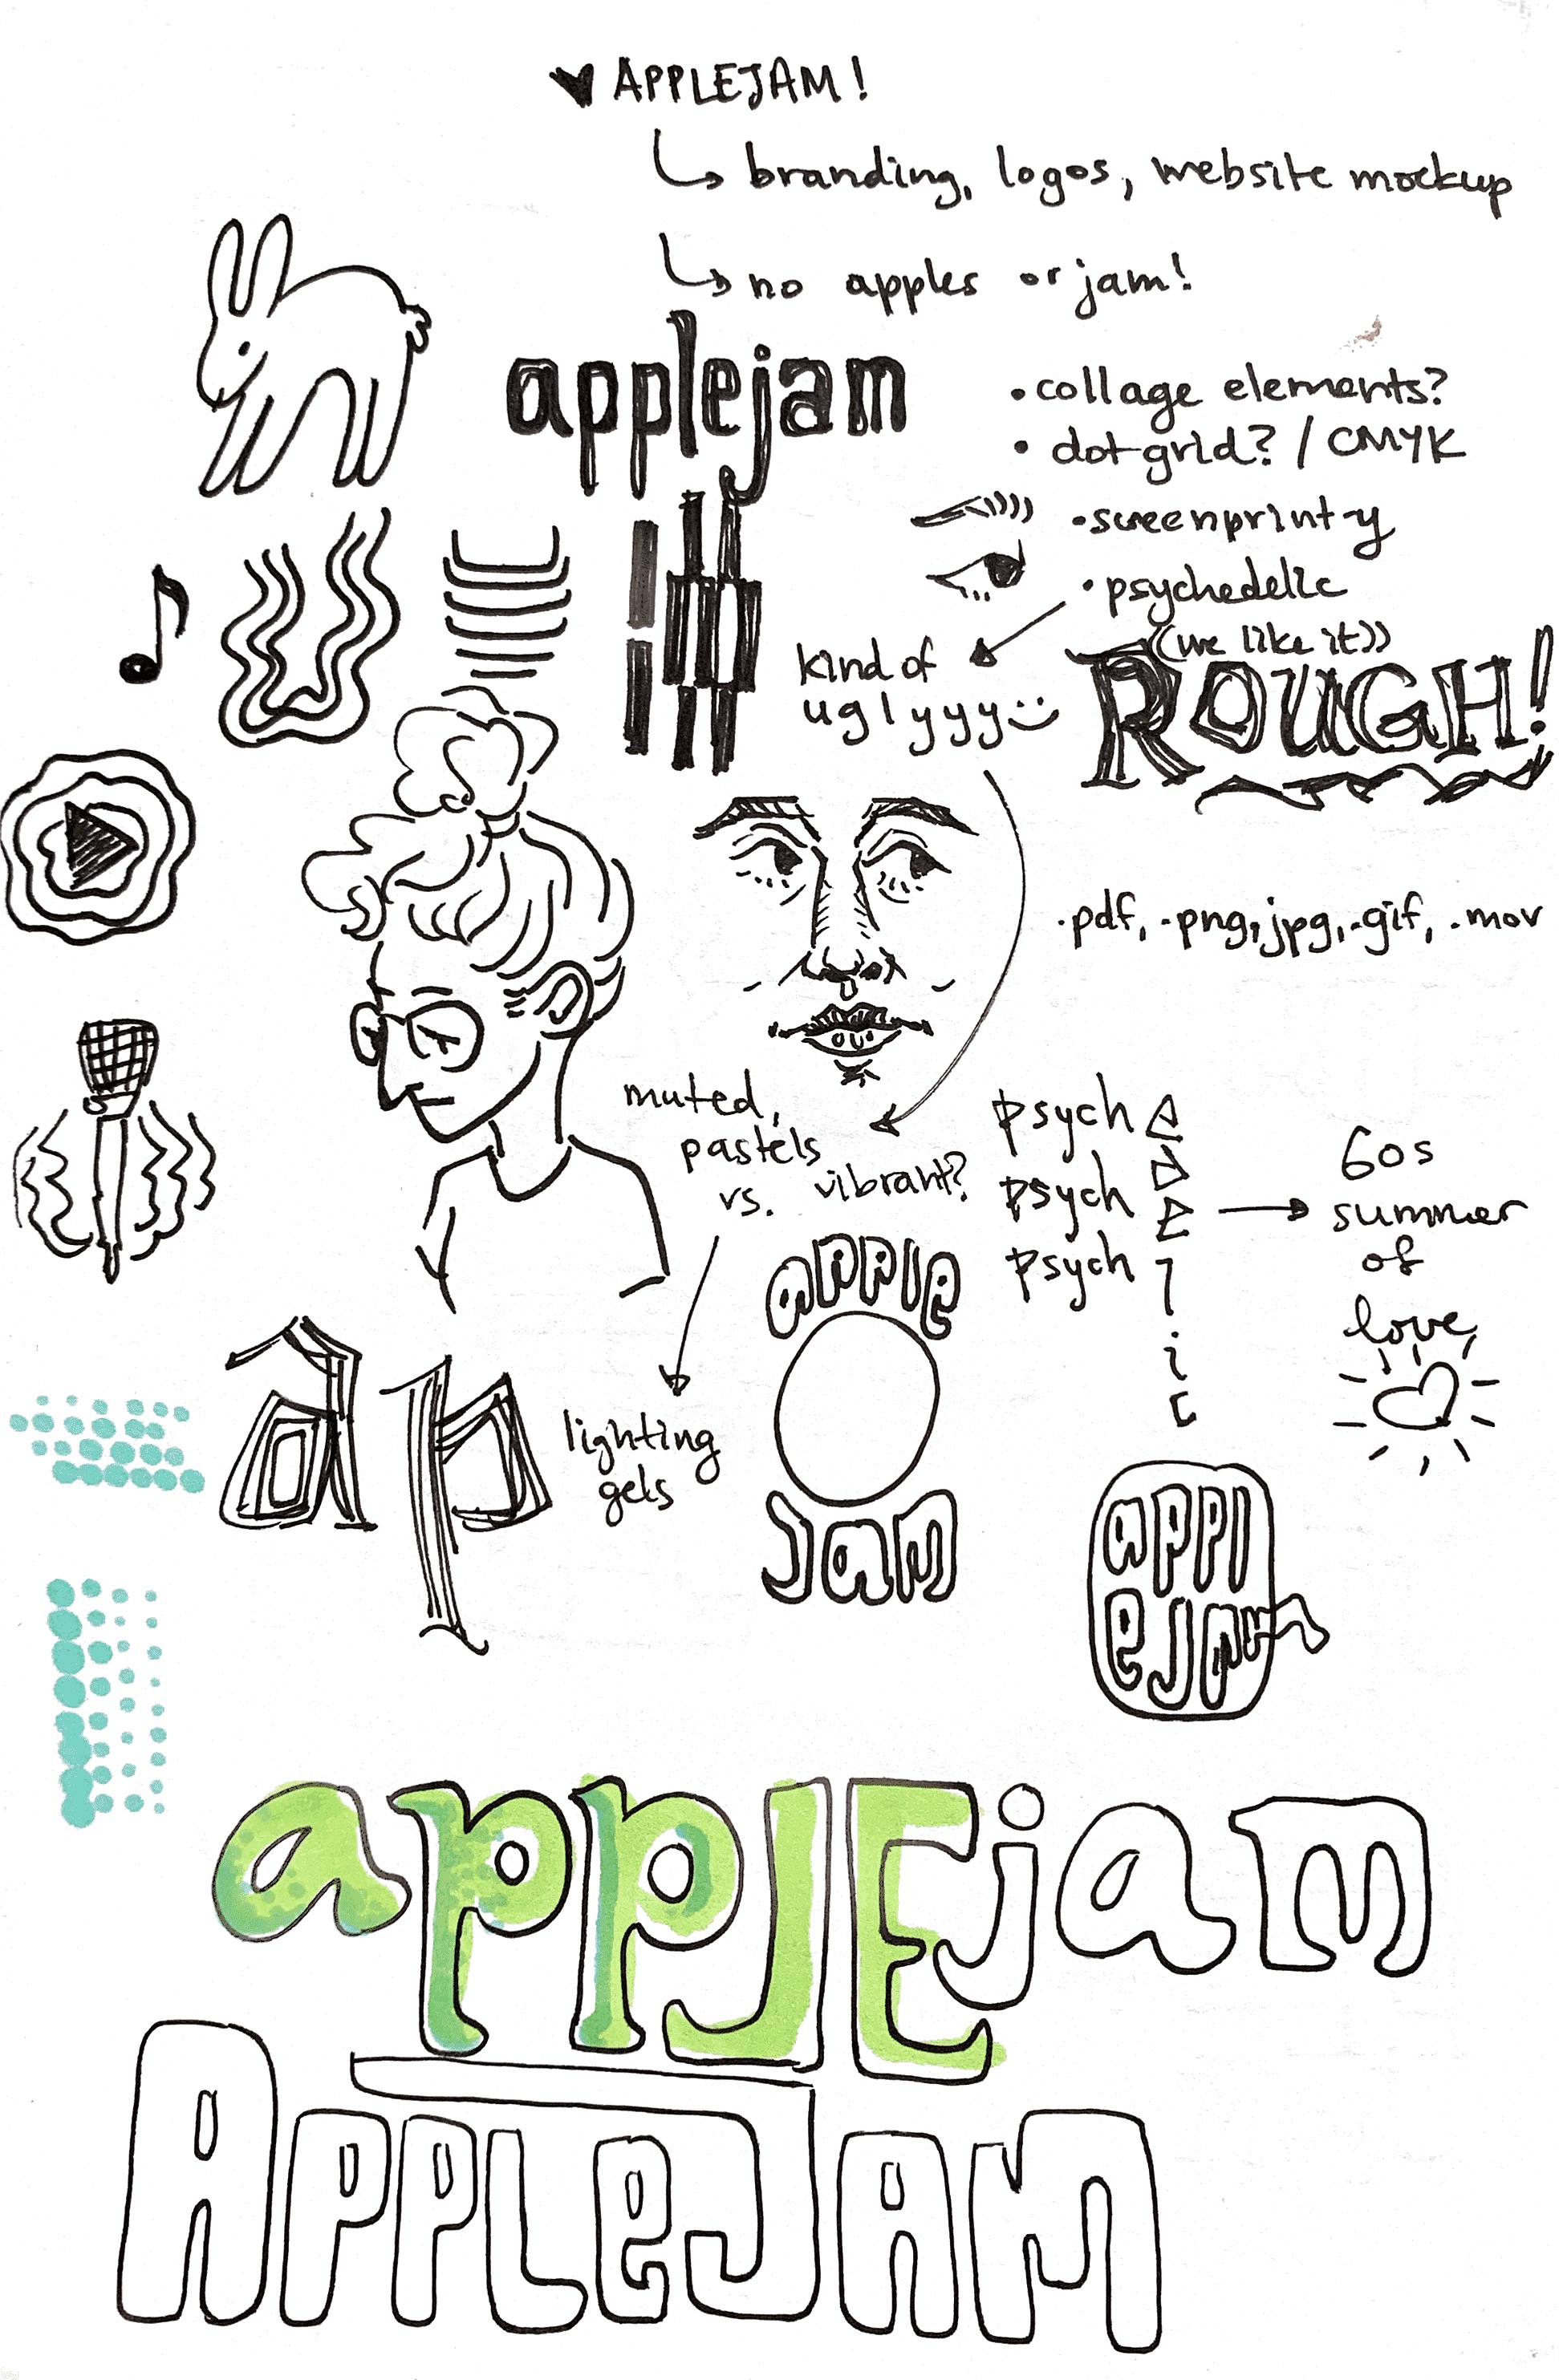 ♥ APPLEJAM!
↳ branding, logos, website mockup
↳ no apples or jam!
applejam
• collage elements?
• dot-grid? / CMYK
• screenprint-y
• psychedelic
(we like it))
kind of
uglyyyy :)
ROUGH!
.pdf, .png, jpg, .gif, .mov
muted,
pastels
vs. vibrant?
psych
psych
psych
e
d
e
l
i
c
60s
summer
of
love,
lighting
gels
apple
jam
ap
appl
ejam
applEjam
AppleJAM